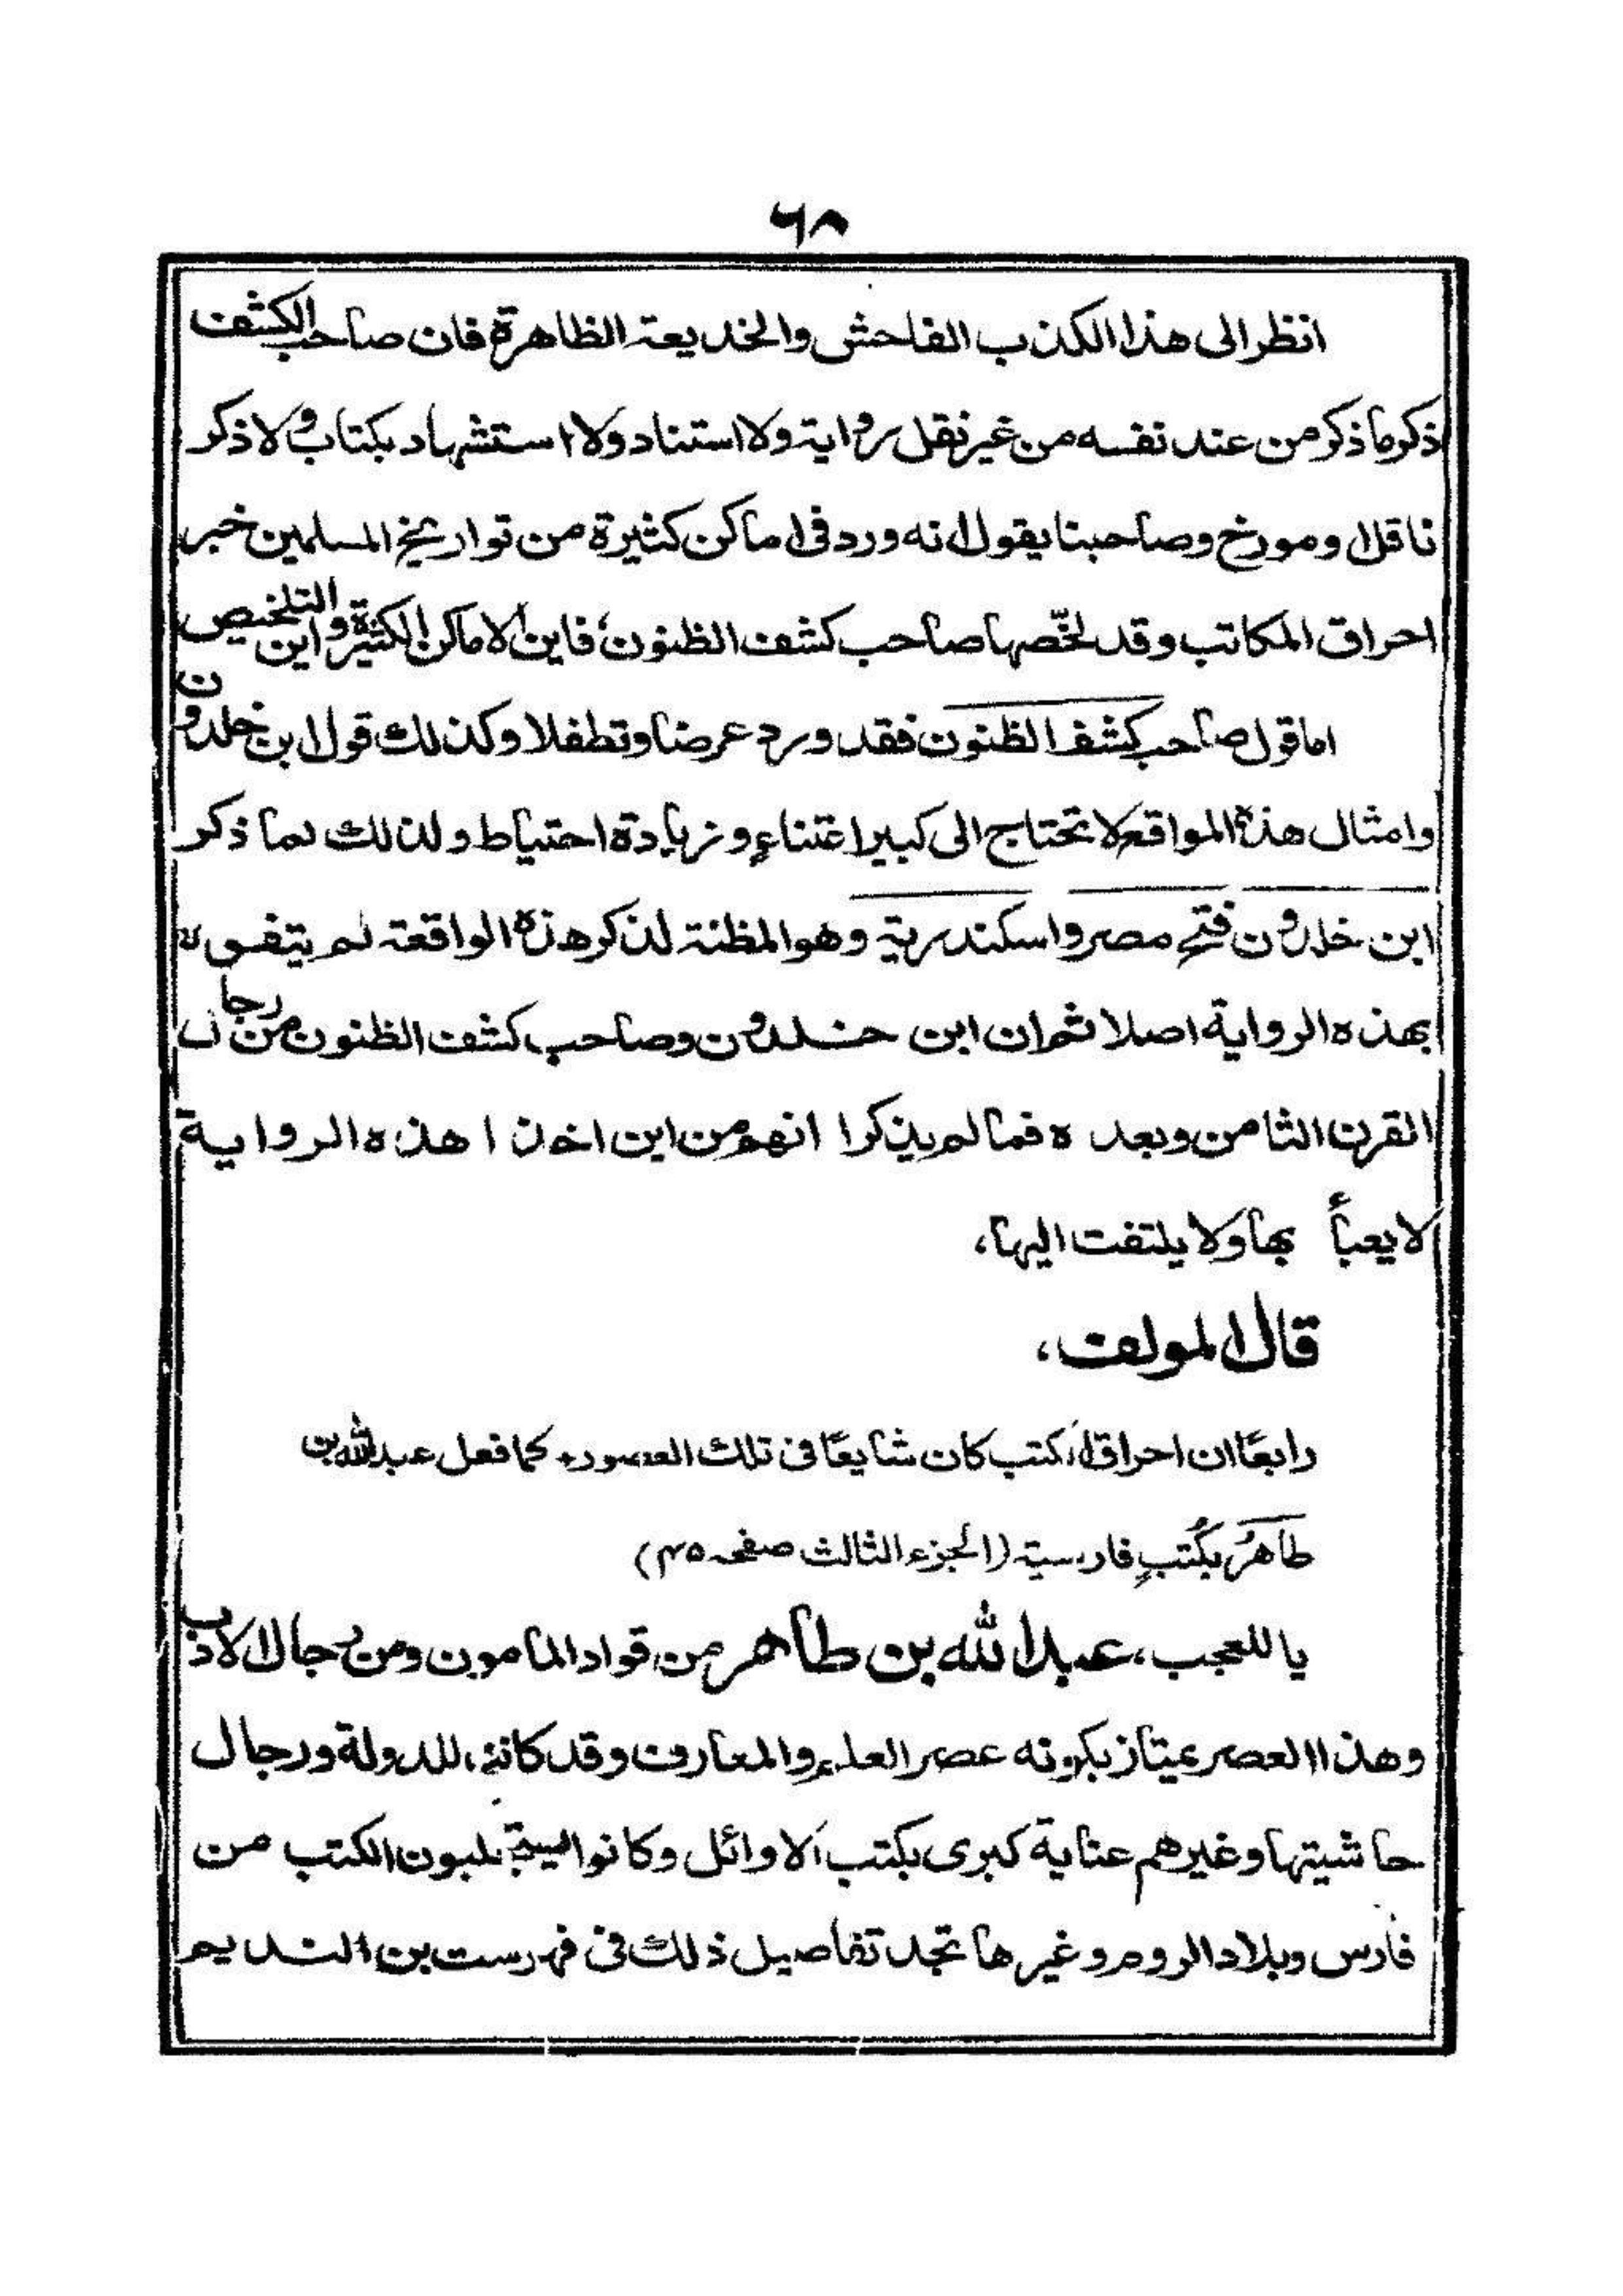 ٦٨
انظر الى هذا الكذب الفاحش والخديعة الظاهرة فان صاحب الكشف
ذكر ما ذكر من عند نفسه من غير نقل رواية ولا استناد ولا استشهاد بكتاب ولا ذكر
ناقل او مورخ وصاحبنا يقول انه ورد فى اماكن كثيرة من تواريخ المسلمين خبر
احراق المكاتب وقد لخّصها صاحب كشف الظنون، فاين الاماكن الكثيرة واين التلخيص
اما قول صاحب كشف الظنون فقد ورد عرضا وتطفلا وكذلك قول ابن خلدون
وامثال هذه المواقع لا تحتاج الى كبير اعتناء وزيادة احتياط ولذلك لما ذكر
ابن خلدون فتح مصر واسكندرية وهو المظنة لذكر هذه الواقعة لم يتفوه
بهذه الرواية اصلا ثم ان ابن خلدون وصاحب كشف الظنون من رجال
القرن الثامن وبعده فما لم يذكرا انهم من اين اخذا هذه الرواية
لا يعبأ بها ولا يلتفت اليها،
قال المولف،
رابعًا ان احراق الكتب كان شايعًا فى تلك العصور، كما فعل عبد الله بن
طاهر بكتب فارسية (الجزء الثالث صفحه ٤٥)
يا للعجب، عبد الله بن طاهر من قواد المامون ومن رجال الادب
وهذا العصر يمتاز بكونه عصر العلم والمعارف وقد كانت للدولة ورجال
حاشيتها وغيرهم عناية كبرى بكتب الاوائل وكانوا يستجلبون الكتب من
فارس وبلاد الروم وغيرها تجد تفاصيل ذلك فى فهرست بن النديم